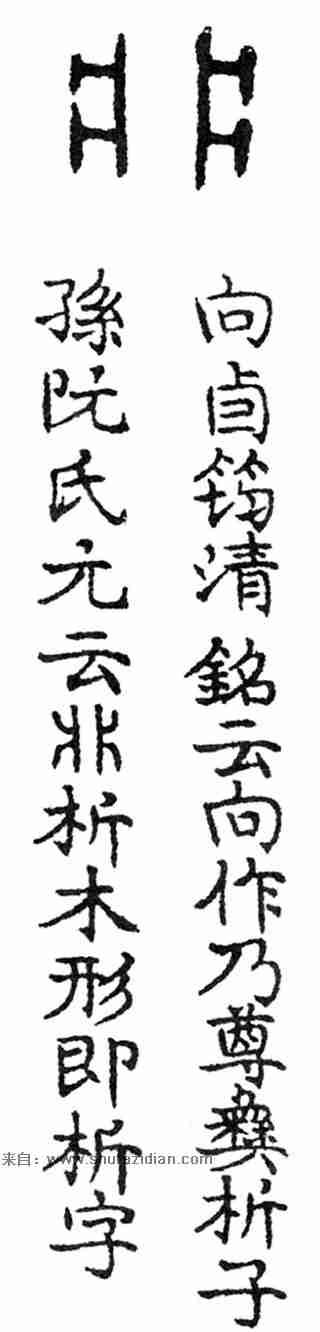 向卣筠清銘云向作乃尊彝析子
孫阮氏元云非析木形即析字
来自：www.shufazidian.com